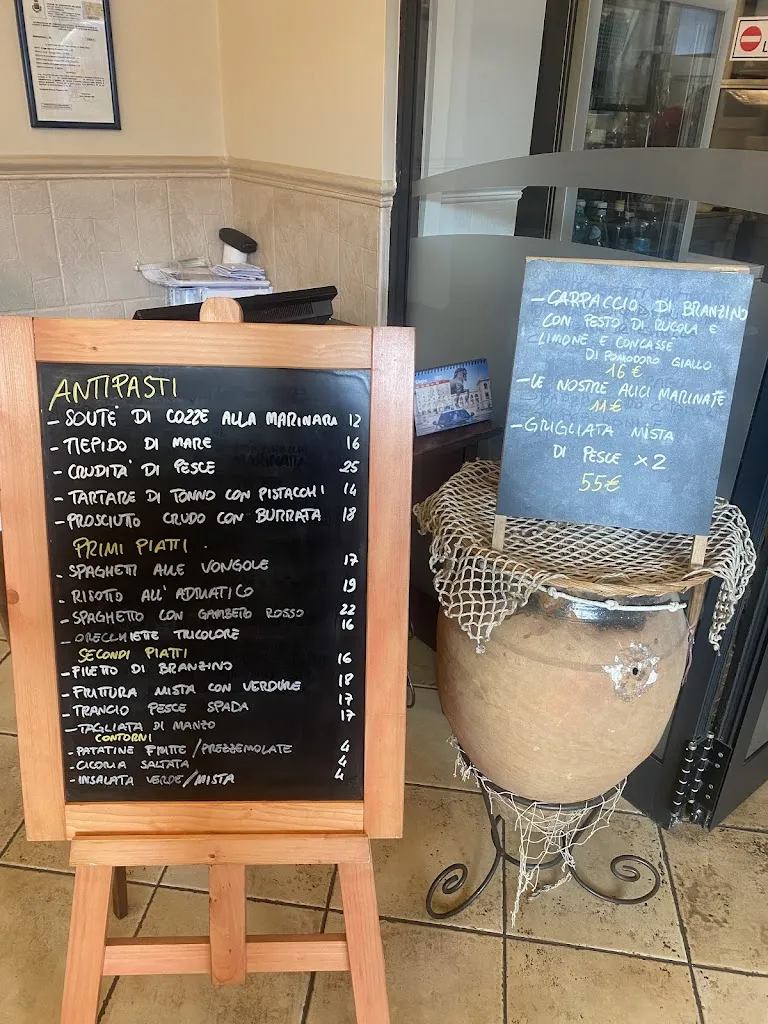 ANTIPASTI
- SOUTE' DI COZZE ALLA MARINARA 12
- TIEPIDO DI MARE 16
- CRUDITA' DI PESCE 25
- TARTARE DI TONNO CON PISTACCHI 14
- PROSCIUTTO CRUDO CON BURRATA 18
PRIMI PIATTI
- SPAGHETTI ALLE VONGOLE 17
- RISOTTO ALL'ADRIATICO 19
- SPAGHETTO CON GAMBERO ROSSO 22
- ORECCHIETTE TRICOLORE 16
SECONDI PIATTI
- FILETTO DI BRANZINO 16
- FRITTURA MISTA CON VERDURE 18
- TRANCIO PESCE SPADA 17
- TAGLIATA DI MANZO 17
CONTORNI
- PATATINE FRITTE/PREZZEMOLATE 4
- CICORIA SALTATA 4
- INSALATA VERDE/MISTA 4
- CARPACCIO DI BRANZINO
CON PESTO DI RUCOLA E
LIMONE E CONCASSE
DI POMODORO GIALLO
16€
- LE NOSTRE ALICI MARINATE
11€
- GRIGLIATA MISTA
DI PESCE X2
55€